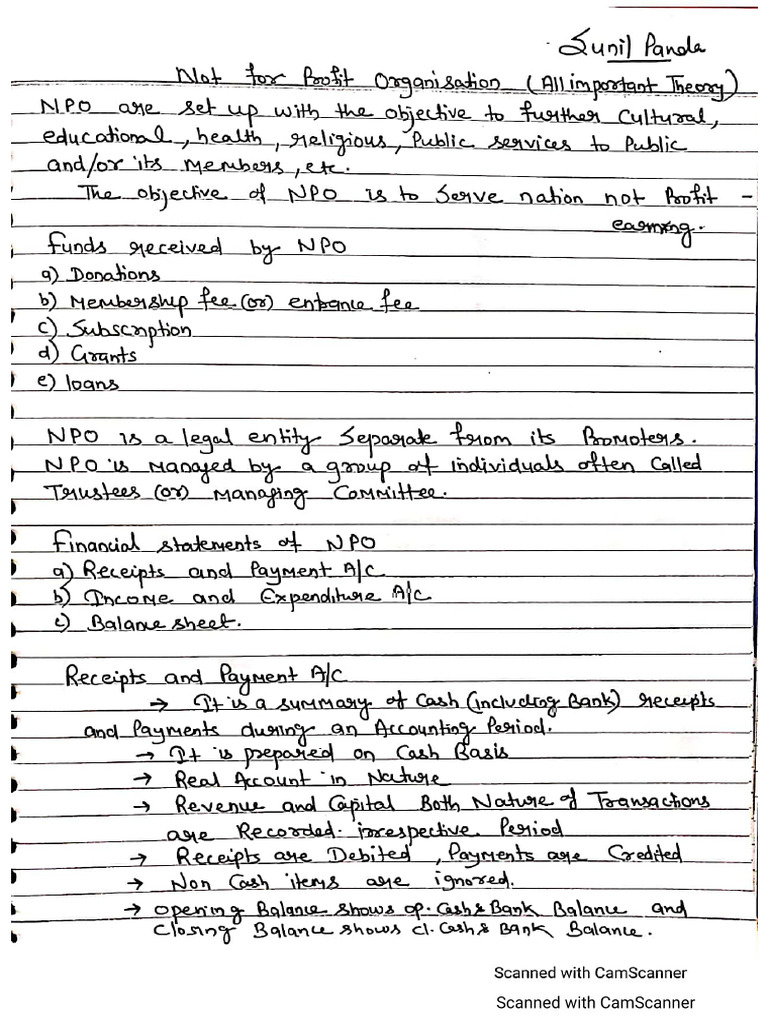 Sunil Panda
Not for Profit Organisation (All important Theory)
NPO are set up with the objective to further Cultural,
educational, health, religious, Public services to Public
and/or its Members, etc.
The objective of NPO is to Serve nation not Profit -
earning.
Funds received by NPO
a) Donations
b) Membership fee (or) entrance fee
c) Subscription
d) Grants
e) loans
NPO is a legal entity Separate from its Promoters.
NPO is Managed by a group of individuals often Called
Trustees (or) Managing Committee.
Financial statements of NPO
a) Receipts and Payment A/C
b) Income and Expenditure A/C
c) Balance sheet.
Receipts and Payment A/C
→ It is a summary of Cash (including Bank) receipts
and Payments during an Accounting Period.
→ It is prepared on Cash Basis
→ Real Account in Nature
→ Revenue and Capital Both Nature of Transactions
are Recorded. irrespective Period
→ Receipts are Debited, Payments are Credited
→ Non Cash items are ignored.
→ Opening Balance shows op. Cash & Bank Balance and
Closing Balance shows cl. Cash & Bank Balance.
Scanned with CamScanner
Scanned with CamScanner